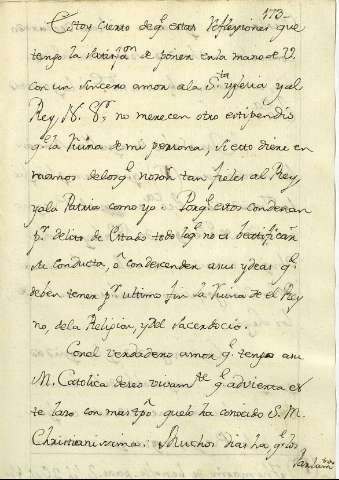 173
Estoy cierto de q.e estas reflexiones que
tengo la satisfa.on de poner en la mano de V.
con un sincero amor a la S.ta yglesia y al
Rey N. S.r, no merecen otro estipendio
q.e la ruina de mi persona, si esto diere en
manos de los q.e no son tan fieles al Rey,
y a la Patria como yo: Porq.e estos condenan
p.r delito de Estado todo lo q.e no es beatifican
su conducta, o condescender a sus ydeas q.e
deben tener p.r ultimo fin la ruina de el Rey
no, de la Religion, y del sacerdocio.
Con el verdadero amor q.e tengo a su
M. Catolica deseo vivam.te q.e advierta es
te lazo con mas tpõ. que lo ha conocido S. M.
Christianissima. Muchos dias ha q.e los